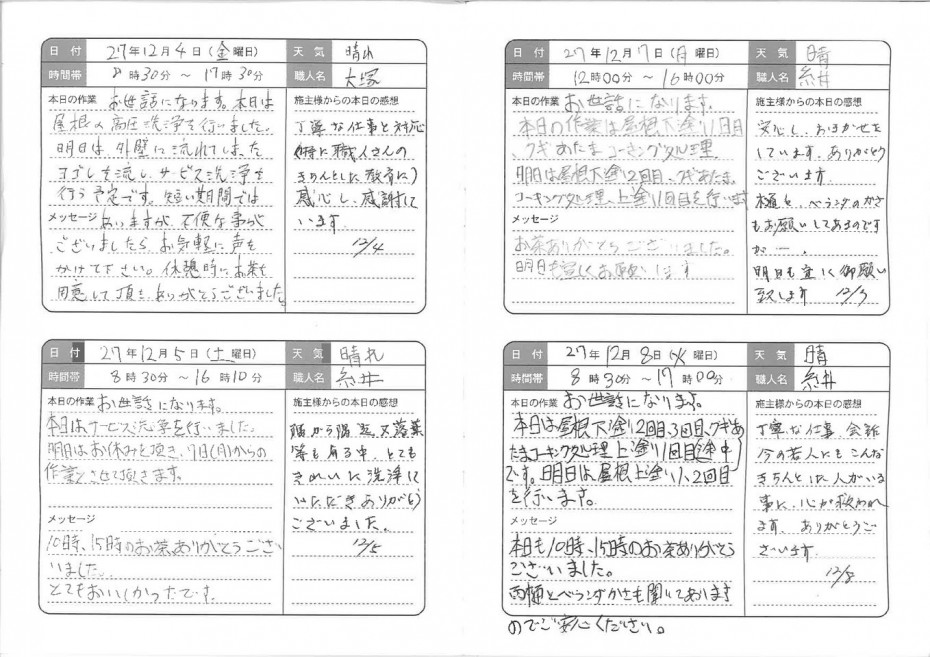 日 付 27年12月4日(金曜日) 天 気 晴れ
時間帯 8時30分 ～ 17時30分 職人名 大塚
本日の作業 お世話になります。本日は
屋根の高圧洗浄を行いました。
明日は、外壁に流れてしまった
ヨゴレを流し、サービス洗浄を
行う予定です。短い期間では
メッセージ 有いますが、不便な事が
ございましたら、お気軽に声を
かけて下さい。休憩時にお茶を
用意して頂き、ありがとうございました。
施主様からの本日の感想
丁寧な仕事と対応
(特に職人さんの
きちんとした教育に)
感心し、感謝して
います。
12/4
日 付 27年12月5日(土曜日) 天 気 晴れ
時間帯 8時30分 ～ 16時10分 職人名 糸井
本日の作業 お世話になります。
本日はサービス洗浄を行いました。
明日はお休みを頂き、7日(月)からの
作業とさせて頂きます。
メッセージ
10時、15時のお茶ありがとうござい
いました。
とてもおいしかったです。
施主様からの本日の感想
隅から隅迄、又落葉
等も有る中、とても
きれいに洗浄して
いただきありがとう
ございました。
12/5
日 付 27年12月7日(月曜日) 天 気 晴
時間帯 12時00分 ～ 16時00分 職人名 糸井
本日の作業 お世話になります。
本日の作業は屋根下塗り1回目
、クギあたまコーキング処理。
明日は屋根下塗り2回目、クギあたま、
コーキング処理、上塗り1回目を行います
メッセージ
お茶ありがとうございました。
明日も宜しくお願いします
施主様からの本日の感想
安心し、おまかせを
しています。ありがとう
ございます
樋と、ベランダのかさ
もお願いしてあるのです
が…
明日も宜しく御願い
致します 12/7
日 付 27年12月8日(火曜日) 天 気 晴
時間帯 8時30分 ～ 17時00分 職人名 糸井
本日の作業 お世話になります。
本日は屋根下塗り2回目、3回目、クギあ
たまコーキング処理上塗り1回目途中
です。明日は屋根上塗り1、2回目
を行います。
メッセージ
本日も10時、15時のお茶ありがとう
ございました。
雨樋とベランダかさも聞いてあります
のでご安心ください。
施主様からの本日の感想
丁寧な仕事、会話
今の若人にもこんな
きちんとした人がいる
事に、心が救われ
ます。ありがとうご
ざいます。
12/8